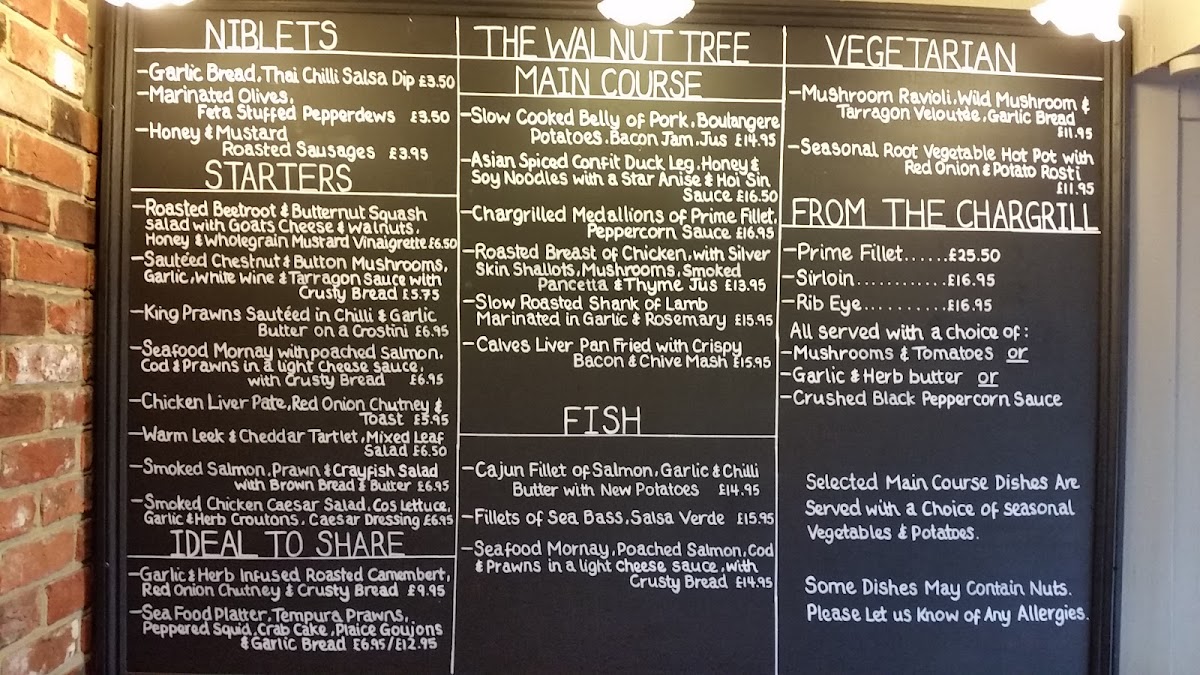 NIBLETS
-Garlic Bread, Thai Chilli Salsa Dip £3.50
-Marinated Olives,
Feta Stuffed Pepperdews £3.50
-Honey & Mustard
Roasted Sausages £3.95
STARTERS
-Roasted Beetroot & Butternut Squash
Salad with Goats Cheese & Walnuts,
Honey & Wholegrain Mustard Vinaigrette £6.50
-Sautéed Chestnut & Button Mushrooms,
Garlic, White Wine & Tarragon Sauce with
Crusty Bread £5.75
-King Prawns Sautéed in Chilli & Garlic
Butter on a Crostini £6.95
-Seafood Mornay with poached Salmon,
Cod & Prawns in a light cheese sauce,
with Crusty Bread £6.95
-Chicken Liver Pate, Red Onion Chutney &
Toast £5.95
-Warm Leek & Cheddar Tartlet, Mixed Leaf
Salad £6.50
-Smoked Salmon, Prawn & Crayfish Salad
with Brown Bread & Butter £6.95
-Smoked Chicken Caesar Salad, Cos Lettuce,
Garlic & Herb Croutons, Caesar Dressing £6.95
IDEAL TO SHARE
-Garlic & Herb Infused Roasted Camembert,
Red Onion Chutney & Crusty Bread £9.95
-Sea Food Platter, Tempura Prawns,
Peppered Squid, Crab Cake, Plaice Goujons
& Garlic Bread £6.95/£12.95
THE WALNUT TREE
MAIN COURSE
-Slow Cooked Belly of Pork, Boulangere
Potatoes, Bacon Jam, Jus £14.95
-Asian Spiced Confit Duck Leg, Honey &
Soy Noodles with a Star Anise & Hoi Sin
Sauce £16.50
-Chargrilled Medallions of Prime Fillet,
Peppercorn Sauce £16.95
-Roasted Breast of Chicken, with Silver
Skin Shallots, Mushrooms, Smoked
Pancetta & Thyme Jus £13.95
-Slow Roasted Shank of Lamb
Marinated in Garlic & Rosemary £15.95
-Calves Liver Pan Fried with Crispy
Bacon & Chive Mash £15.95
FISH
-Cajun Fillet of Salmon, Garlic & Chilli
Butter with New Potatoes £14.95
-Fillets of Sea Bass, Salsa Verde £15.95
-Seafood Mornay, Poached Salmon, Cod
& Prawns in a light cheese sauce, with
Crusty Bread £14.95
VEGETARIAN
-Mushroom Ravioli, Wild Mushroom &
Tarragon Veloutée, Garlic Bread
£11.95
-Seasonal Root Vegetable Hot Pot with
Red Onion & Potato Rosti
£11.95
FROM THE CHARGRILL
-Prime Fillet......£25.50
-Sirloin............£16.95
-Rib Eye..........£16.95
All served with a choice of:
-Mushrooms & Tomatoes or
-Garlic & Herb butter or
-Crushed Black Peppercorn Sauce
Selected Main Course Dishes Are
Served with a Choice of seasonal
Vegetables & Potatoes.
Some Dishes May Contain Nuts.
Please Let us Know of Any Allergies.